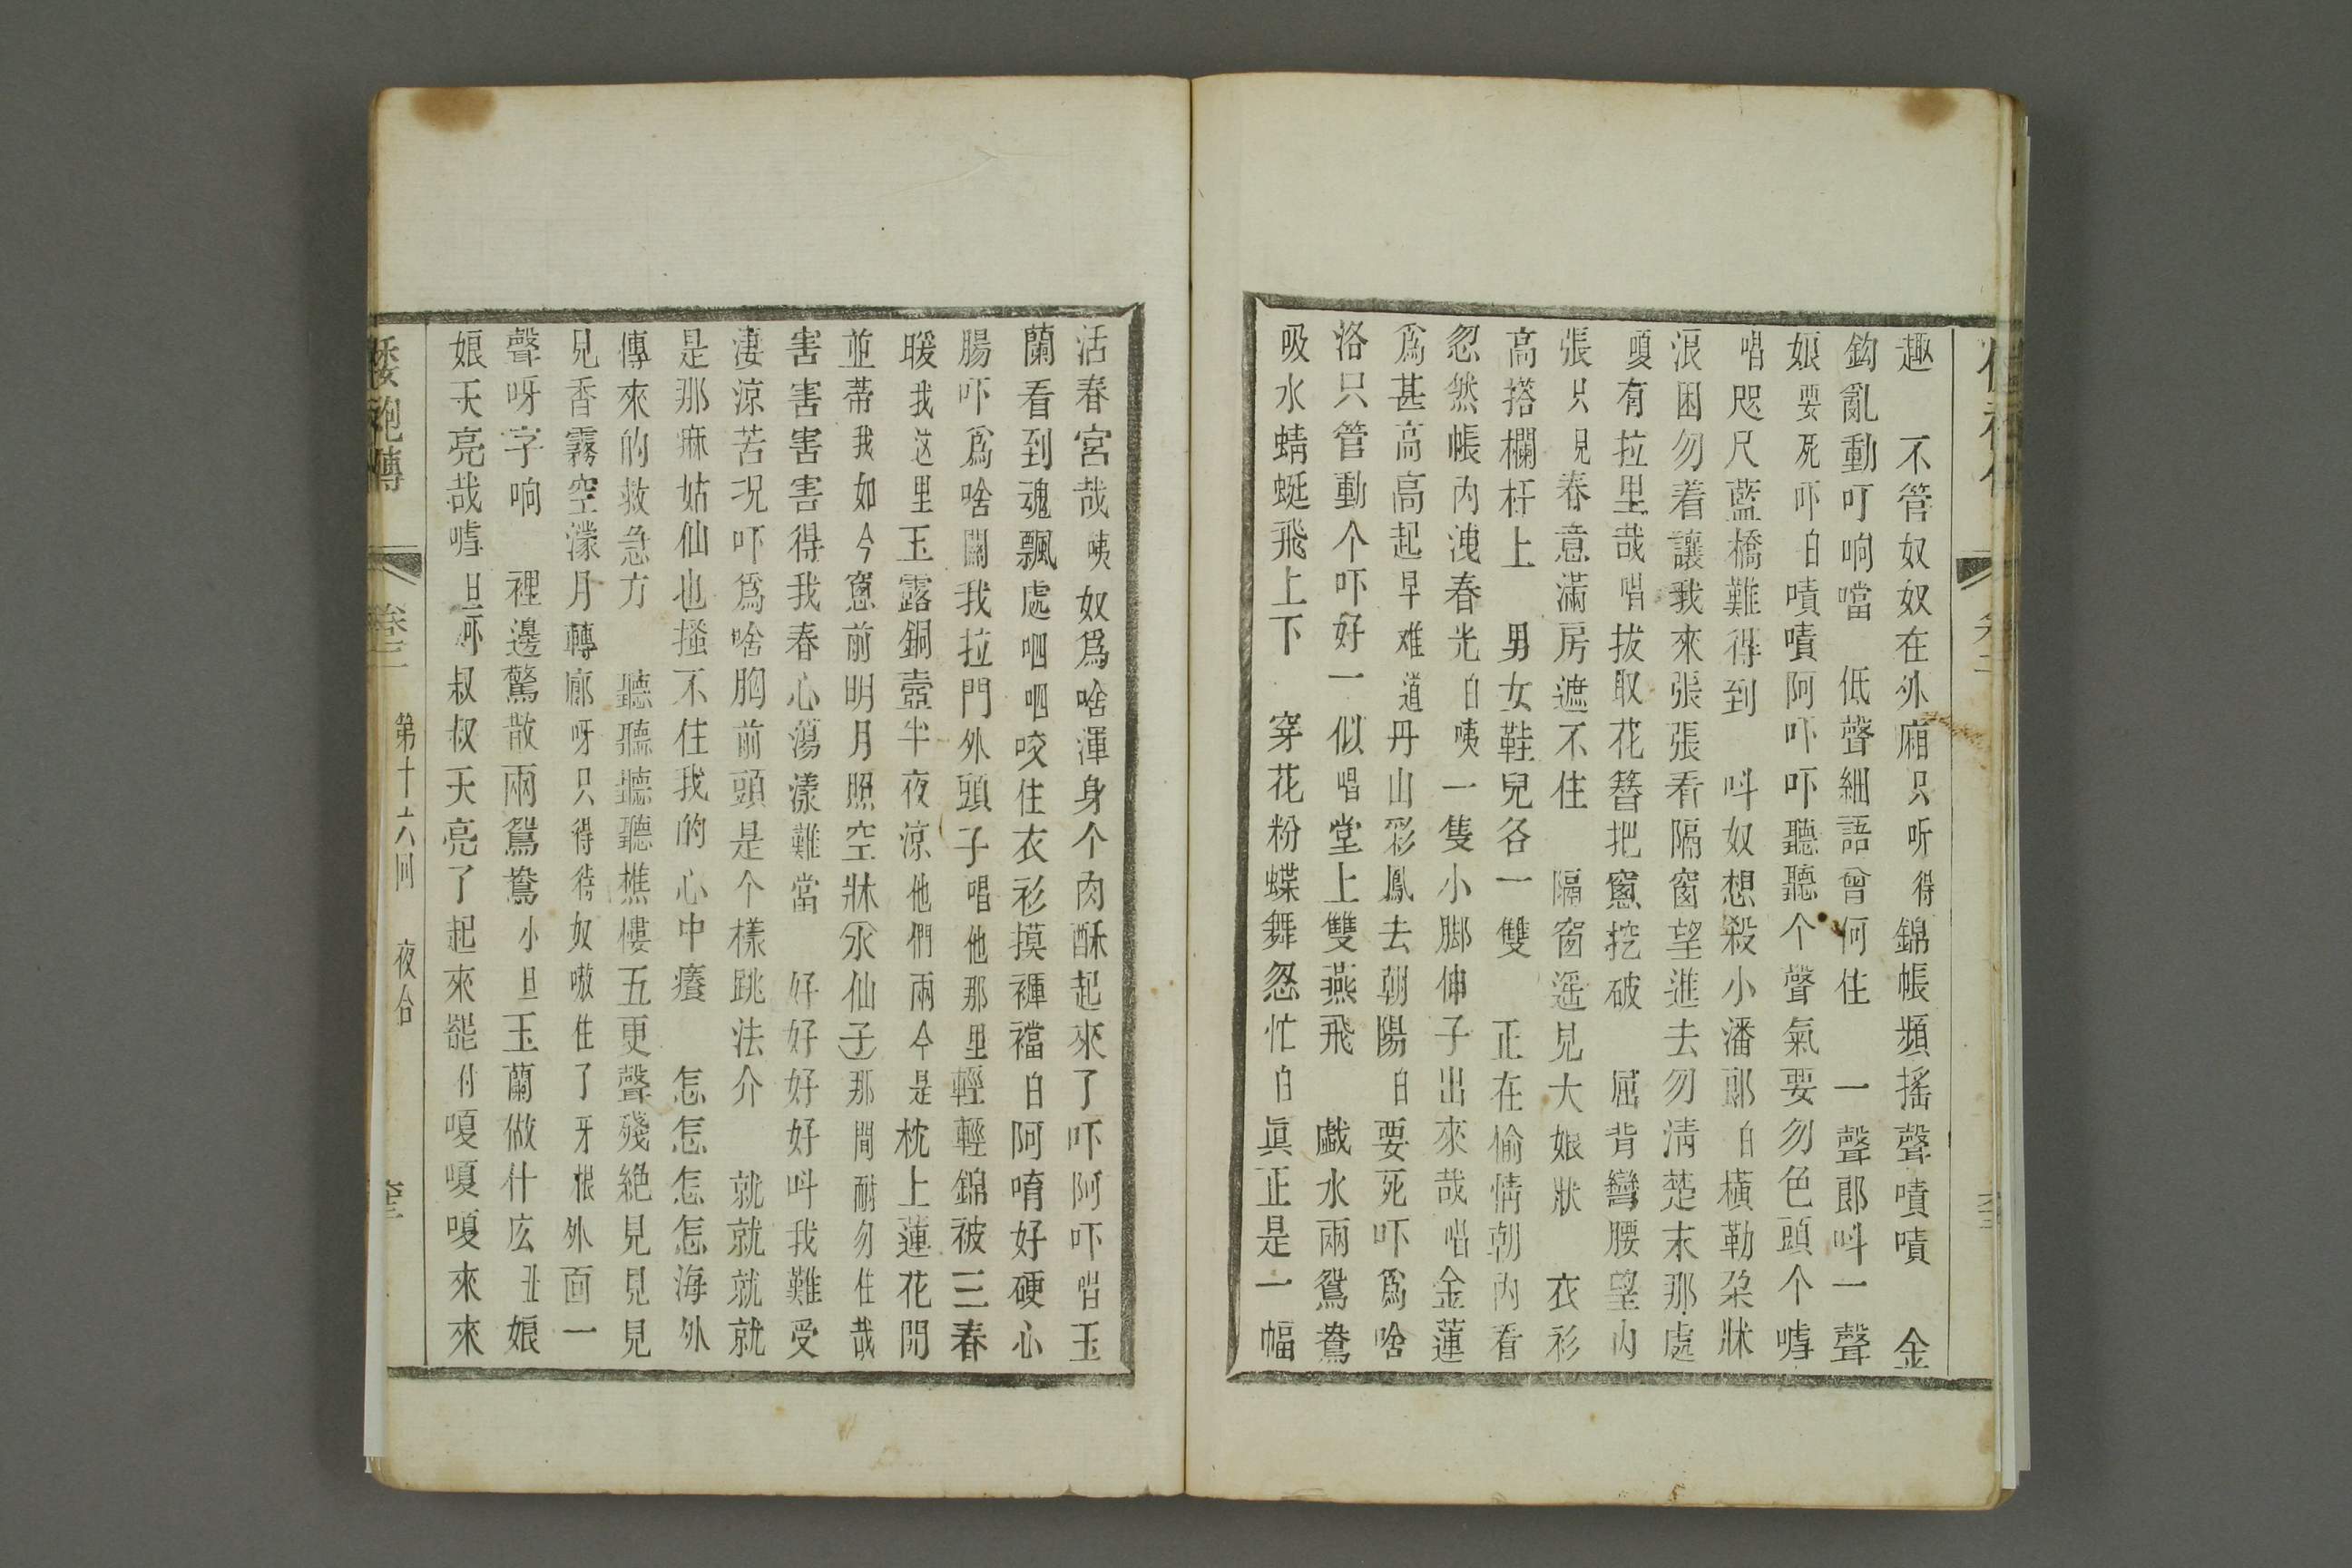 趣　不管奴奴在外廂只听得錦帳頻搖聲嘖嘖　金
鈎亂動叮响噹　低聲細語曾何住　一聲郎呌一聲
娘要死吓白嘖嘖阿吓吓聽聽个聲氣要勿色頭个嘑
唱咫尺藍橋難得到　呌奴想殺小潘郎白橫勒朶牀
浪困勿着讓我來張張看隔窗望進去勿淸楚末那處
嗄有拉里哉唱拔取花簪把窻挖破　屈背彎腰望內
張只見春意滿房遮不住　隔窗遥見大娘狀　衣衫
高搭欄杆上　男女鞋兒各一雙　正在偷情朝內看
忽然帳內洩春光白咦一隻小脚伸子出來哉唱金蓮
爲甚高高起早难道丹山彩鳳去朝陽白要死吓爲啥
洛只管動个吓好一似唱堂上雙燕飛　戯水兩鴛鴦
吸水蜻蜓飛上下　穿花粉蝶舞忽忙白眞正是一幅
活春宮哉咦奴爲啥渾身个肉酥起來了吓阿吓唱玉
蘭看到魂飄處咽咽咬住衣衫摸褲襠白阿唷好硬心
腸吓爲啥關我拉門外頭子唱他那里輕輕錦被三春
暖我这里玉露銅壺半夜凉他們兩今是枕上蓮花開
並蒂我如今窻前明月照空牀（水仙子）那間耐勿住哉
害害害害得我春心蕩漾難當　好好好好呌我難受
淒凉苦况吓爲啥胸前頭是个樣跳法介　就就就就
是那麻姑仙也搔不住我的心中癢　怎怎怎怎海外
傳來的救急方　聽聽聽聽樵樓五更聲殘絕見見見
見香霧空濛月轉廊呀只得待奴嗷住了牙根外面一
聲呀字响　裡邊驚散兩鴛鴦小旦玉蘭做什庅丑娘
娘天亮哉嘑旦吓叔叔天亮了起來罷付嗄嗄嗄來來
倭袍傳　卷三　第十六回　夜合